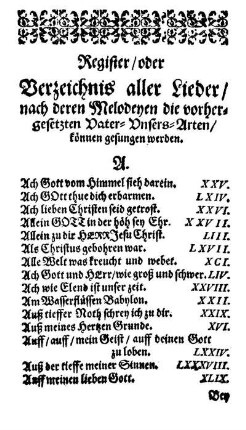 Register/ oder
Verzeichnis aller Lieder/
nach deren Melodeyen die vorher-
gesetzten Vater-Unsers-Arten/
können gesungen werden.
A.
Ach Gott vom Himmel sieh darein. XXV.
Ach GOtt thue dich erbarmen. LXIV.
Ach lieben Christen seid getrost. XXVI.
Allein GOTT in der höh sey Ehr. XXVII.
Allein zu dir HERR Jesu Christ. LIII.
Als Christus gebohren war. LXVII.
Alle Welt was kreucht und webet. XCI.
Ach Gott und HErr/ wie groß und schwer. LIV.
Ach wie Elend ist unser zeit. XXVIII.
Am Wasserflüssen Babylon. XXII.
Auß tieffer Noth schrey ich zu dir. XXIX.
Auß meines Hertzen Grunde. XVI.
Auff/ auff/ mein Geist/ auff deinen Gott
zu loben. LXXIV.
Auß der tieffe meiner Sinnen. LXXXVIII.
Auff meinen lieben Gott. XLIX.
Bey